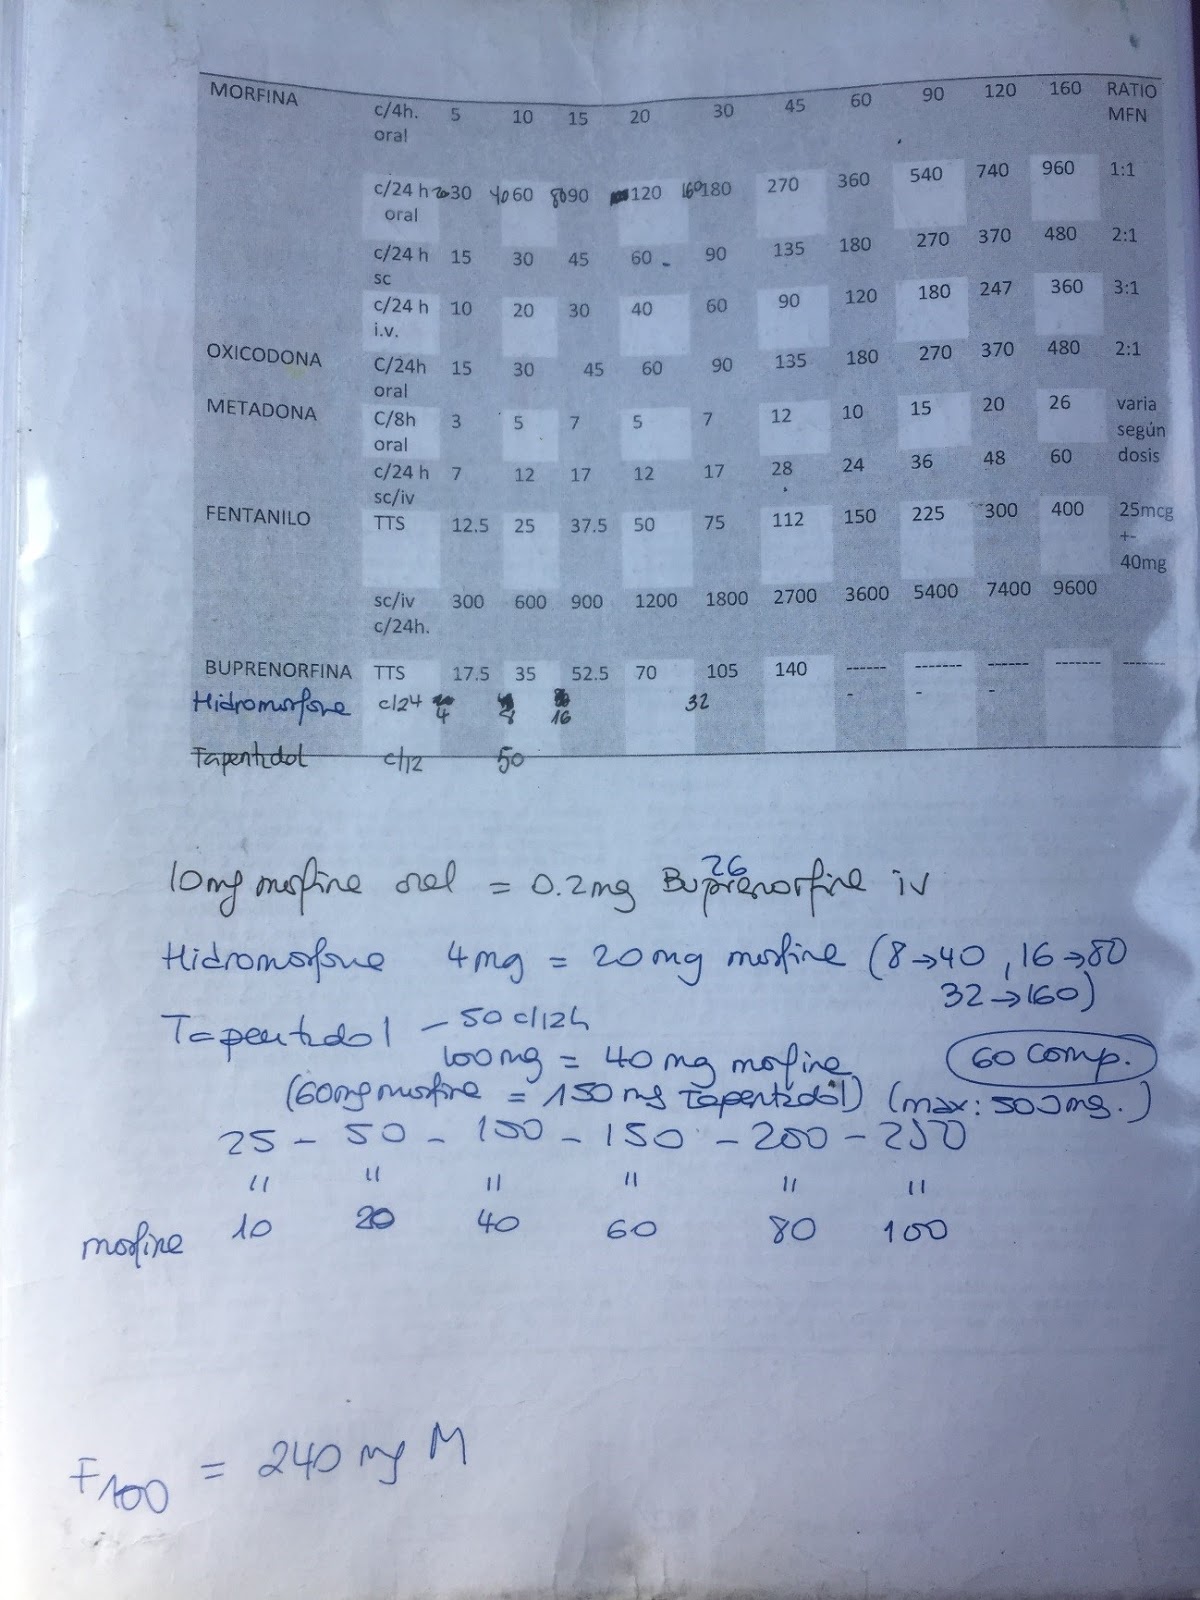 MORFINA c/4h. oral 5 10 15 20 30 45 60 90 120 160 RATIO MFN
c/24 h oral 20 30 40 60 80 90 120 160 180 270 360 540 740 960 1:1
c/24 h sc 15 30 45 60 90 135 180 270 370 480 2:1
c/24 h i.v. 10 20 30 40 60 90 120 180 247 360 3:1
OXICODONA C/24h oral 15 30 45 60 90 135 180 270 370 480 2:1
METADONA C/8h oral 3 5 7 5 7 12 10 15 20 26 varia según dosis
c/24 h sc/iv 7 12 17 12 17 28 24 36 48 60
FENTANILO TTS 12.5 25 37.5 50 75 112 150 225 300 400 25mcg +- 40mg
sc/iv c/24h. 300 600 900 1200 1800 2700 3600 5400 7400 9600
BUPRENORFINA TTS 17.5 35 52.5 70 105 140 ------ ------- ------ ------- -------
Hidromorfona c/24 4 8 16 32 - - -
Tapentadol c/12 50
10mg morfina oral = 0.2mg Buprenorfina iv
26
Hidromorfona 4mg = 20mg morfina (8→40, 16→80
32→160)
Tapentadol - 50 c/12h
100mg = 40 mg morfina 60 comp.
(60mg morfina = 150 mg Tapentadol) (max: 500mg.)
25 - 50 - 100 - 150 - 200 - 250
" " " " " "
morfina 10 20 40 60 80 100
F100 = 240 mg M